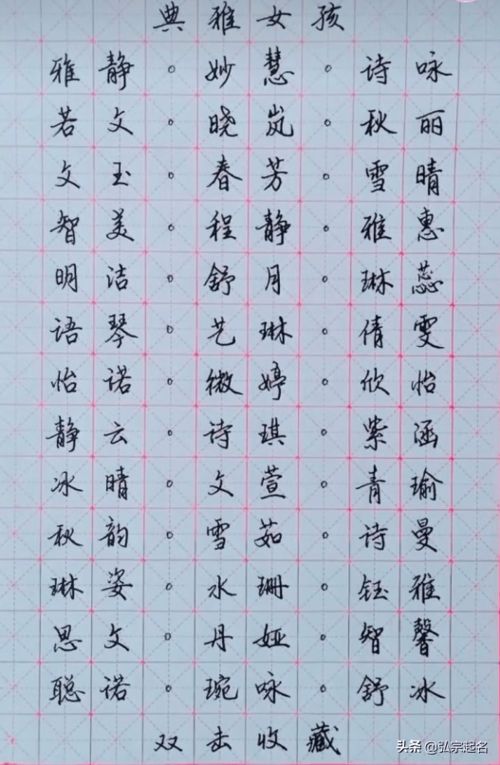 典雅女孩
雅静。妙慧。诗咏
若文。晓岚。秋丽
文玉。春芳。雪晴
智美。程静。雅惠
明洁。舒月。琳蕊
语琴。艺琳。倩雯
怡诺。微婷。欣怡
静云。诗琪。紫涵
冰晴。文萱。青瑜
秋韵。雪茹。诗曼
琳姿。水珊。钰雅
思文。丹娅。智馨
聪诺。琬咏。舒冰
双击收藏
头条@弘宗起名